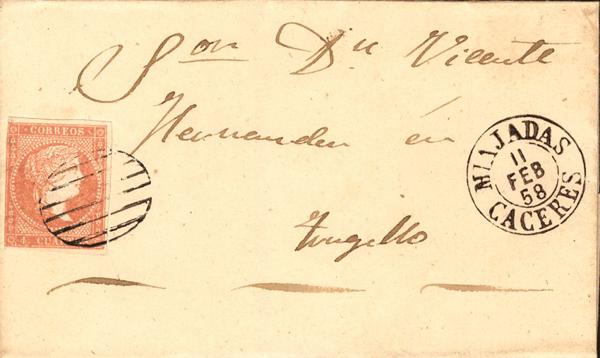 Sor Dn Vicente
Hernandez en
Trugillo
CORREOS
4 CUARTOS
MIAJADAS
11
FEB
58
CACERES